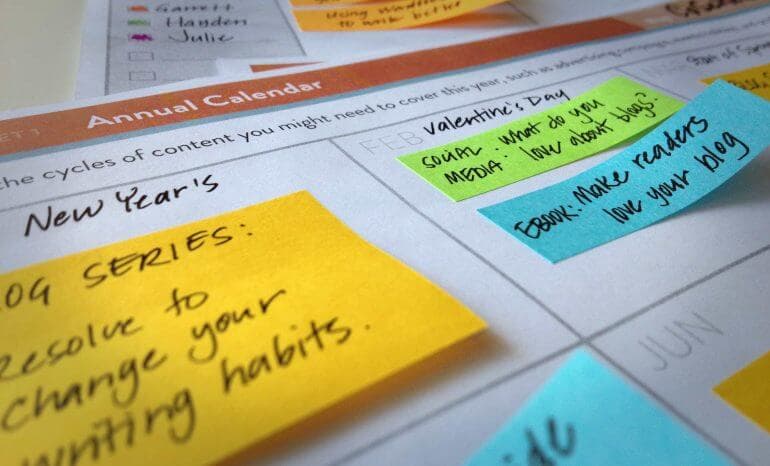 Garrett
Hayden
Julie
to work better
Annual Calendar
the cycles of content you might need to cover this year, such as advertising
New Year's
FEB
Valentine's Day
SOCIAL MEDIA: What do you
love about blogs?
EBOOK: Make readers
love your blog
SERIES:
resolve to
change your
writing habits.
JUN